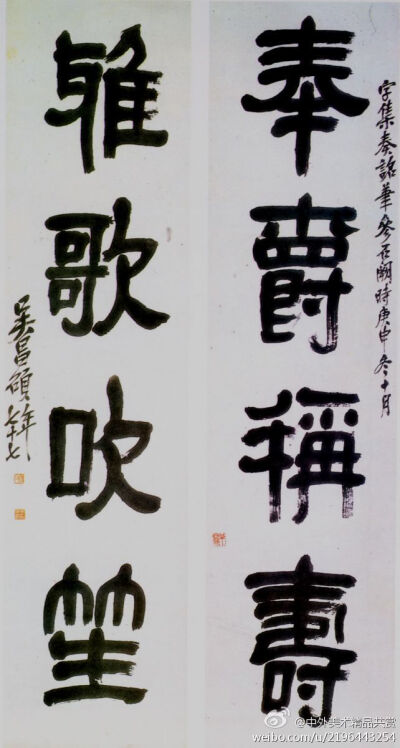 字集秦詔筆參石闕時庚申冬十月
奉爵稱壽
雅歌吹笙
吳昌碩年七十七
@中外美术精品共赏
weibo.com/u/2196443254